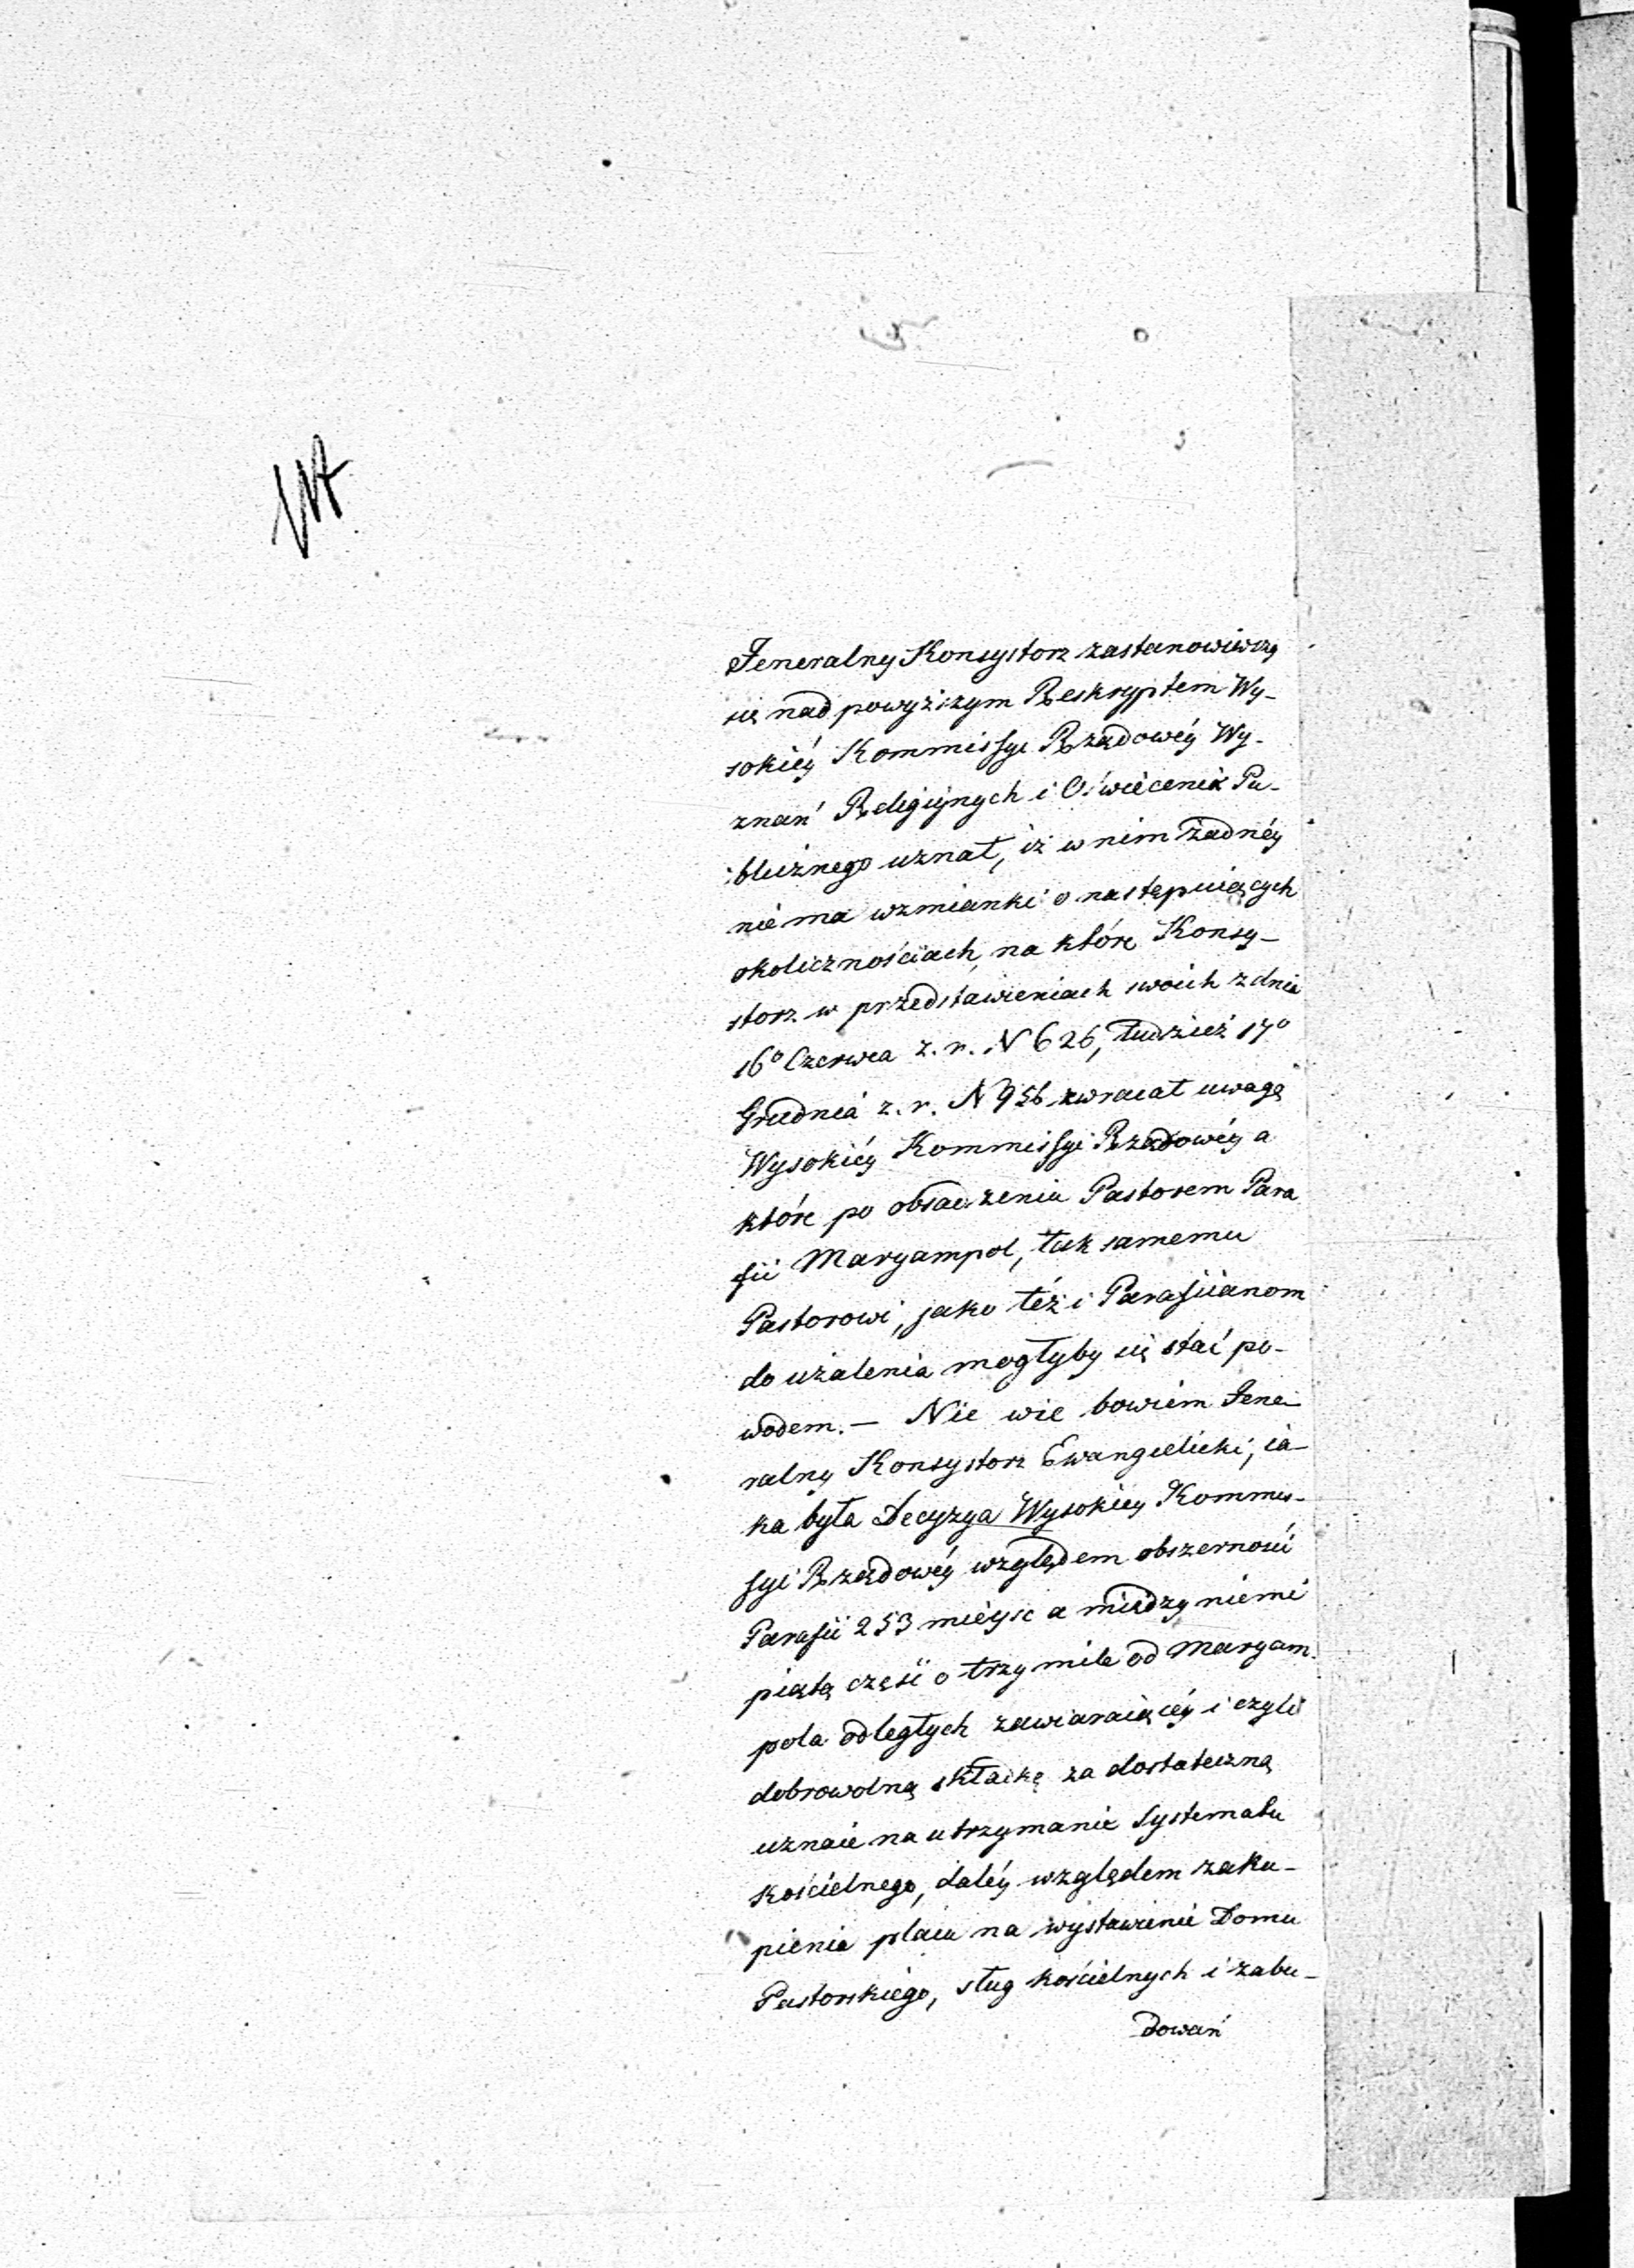 Jeneralny Konsystorz zastanowiwszy
się nad powyższym Reskryptem Wy-
sokiéy Kommissyi Rządowéy Wy-
znań Religiynych i Oświecenia Pu-
blicznego uznał, iż w nim żadnéy
niema wzmianki o następuiących
okolicznościach, na które Konsy-
storz w przedstawieniach swoich z dnia
16º Czerwca z. r. N 626, tudzież 17º
Grudnia z. r. N 956 zwracał uwagę
Wysokiéy Kommissyi Rządowéy a
które po obsadzeniu Pastorem Para
fii Maryampol, tak samemu
Pastorowi, jako też i Parafiianom
do użalenia mogłyby się stać po-
wodem. — Nie wie bowiem Jene-
ralny Konsystorz Ewangielicki, ia-
ka była Decyzya Wysokiey Kommis-
syi Rządowéy względem obszerności
Parafii 253 mieysc a między niemi
piątą część o trzy mile od Maryam-
pola odległych zawieraiącéy i czyli
dobrowolną składkę za dostateczną
uznaie na utrzymanie Systematu
kościelnego, daléy względem zaku-
pienia placu na wystawienie Domu
Pastorskiego, sług kościelnych i zabu-
dowań